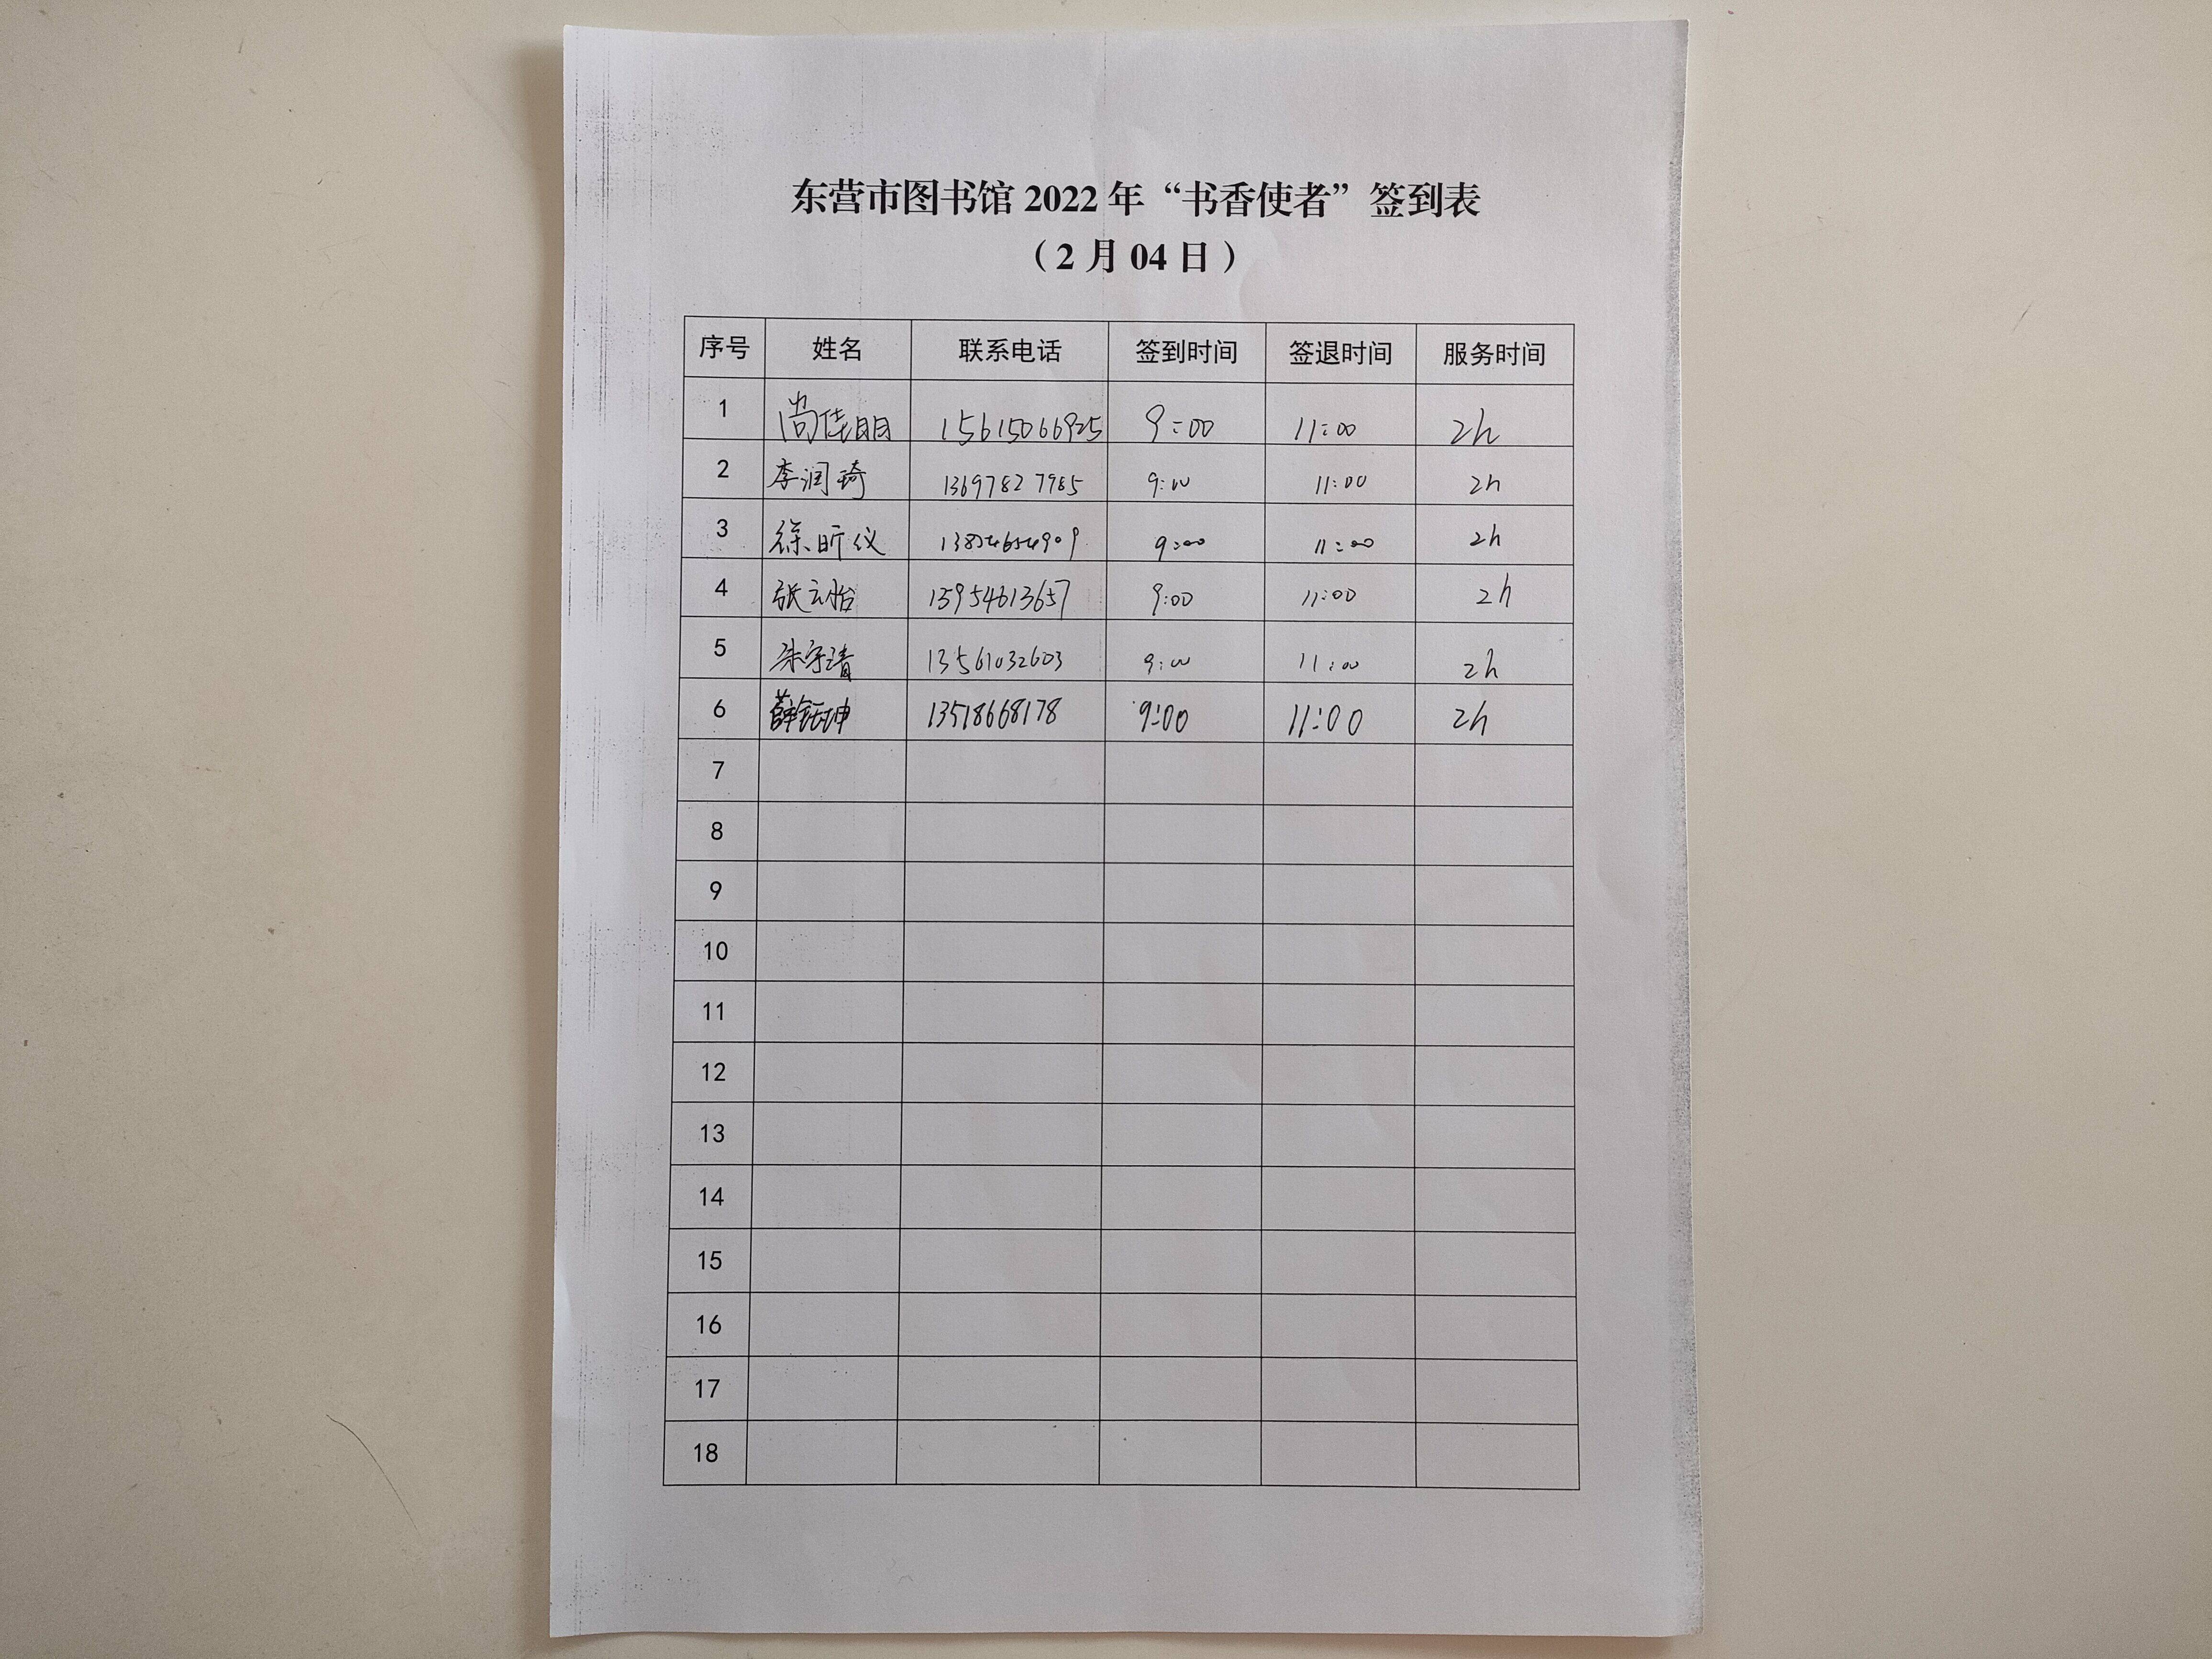 东营市图书馆 2022 年“书香使者”签到表
（2 月 04 日）
序号 姓名 联系电话 签到时间 签退时间 服务时间
1 尚佳明 15615066925 9:00 11:00 2h
2 李润琦 13697827985 9:00 11:00 2h
3 徐昕仪 13854654909 9:00 11:00 2h
4 张云怡 13954613657 9:00 11:00 2h
5 13561032603 9:00 11:00 2h
6 薛钰坤 13518668178 9:00 11:00 2h
7
8
9
10
11
12
13
14
15
16
17
18